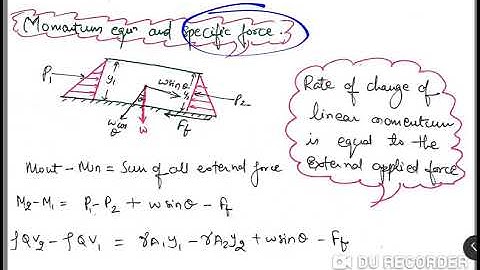 Momentum eqn and specific force.
P₁
y₁
wsinθ
y₂
P₂
θ
wcos
θ
w
Ff
Rate of change of
linear momentum
is equal to the
External applied force
Mout - Min = Sum of all external force
M₂-M₁ = P₁-P₂ + wsinθ - Ff
ρQV₂ - ρQV₁ = γA₁y₁ - γA₂y₂ + wsinθ - Ff
DU RECORDER